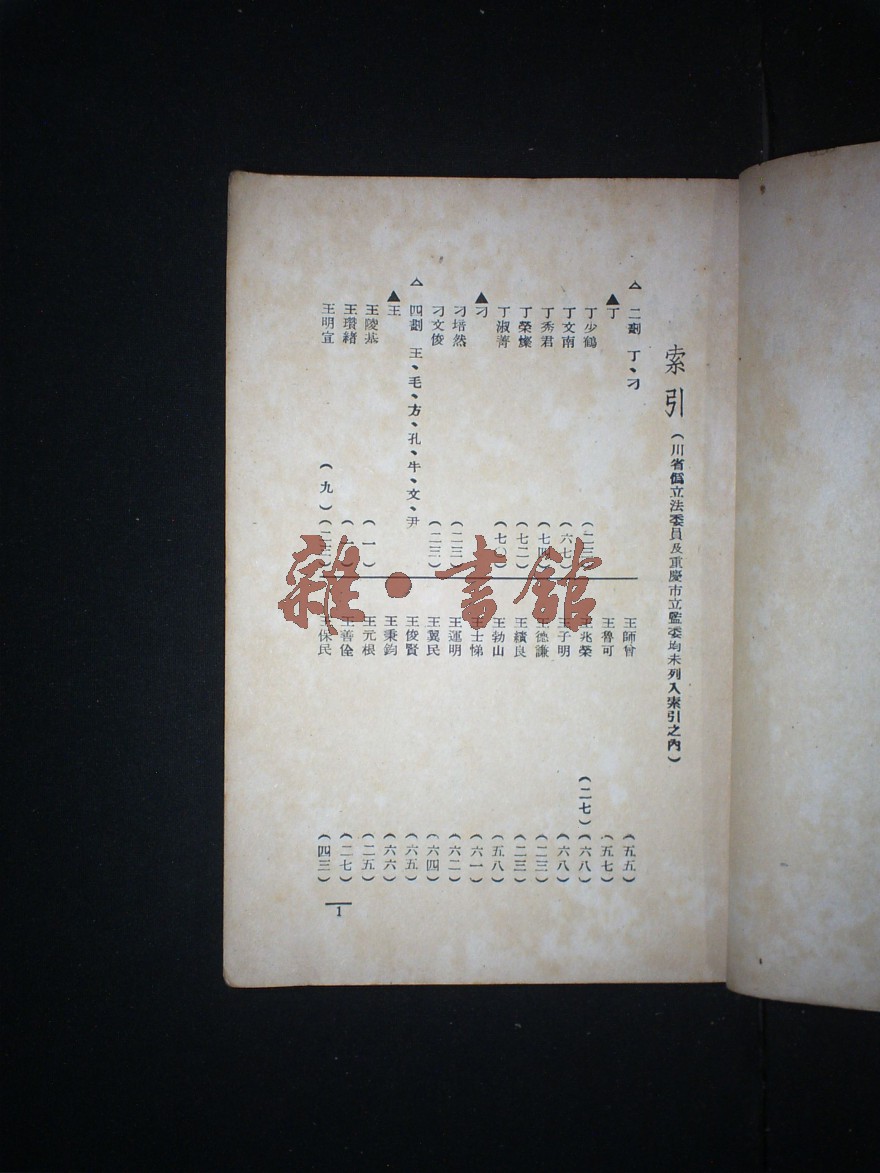 索引(川省僞立法委員及重慶市立監委均未列入索引之內)
△二劃 丁、刁
▲丁
丁少鶴
丁文南 (六七)
丁秀君 (七四)
丁榮燦 (七二)
丁淑菁 (七〇)
▲刁
刁培然 (二三)
刁文俊 (二三)
△四劃 王、毛、方、孔、牛、文、尹
▲王
王陵基 (一)
王瓚緒
王明宣 (九)
王師曾 (五五)
王魯可 (五七)
王兆榮 (二七)(六八)
王子明 (六八)
王德謙 (二三)
王績良 (二三)
王勃山 (五八)
王士悌 (六一)
王運明 (六二)
王翼民 (六四)
王俊賢 (六五)
王秉鈞 (六六)
王元根 (二五)
王善佺 (二七)
王保民 (四三)
1
雜·書館